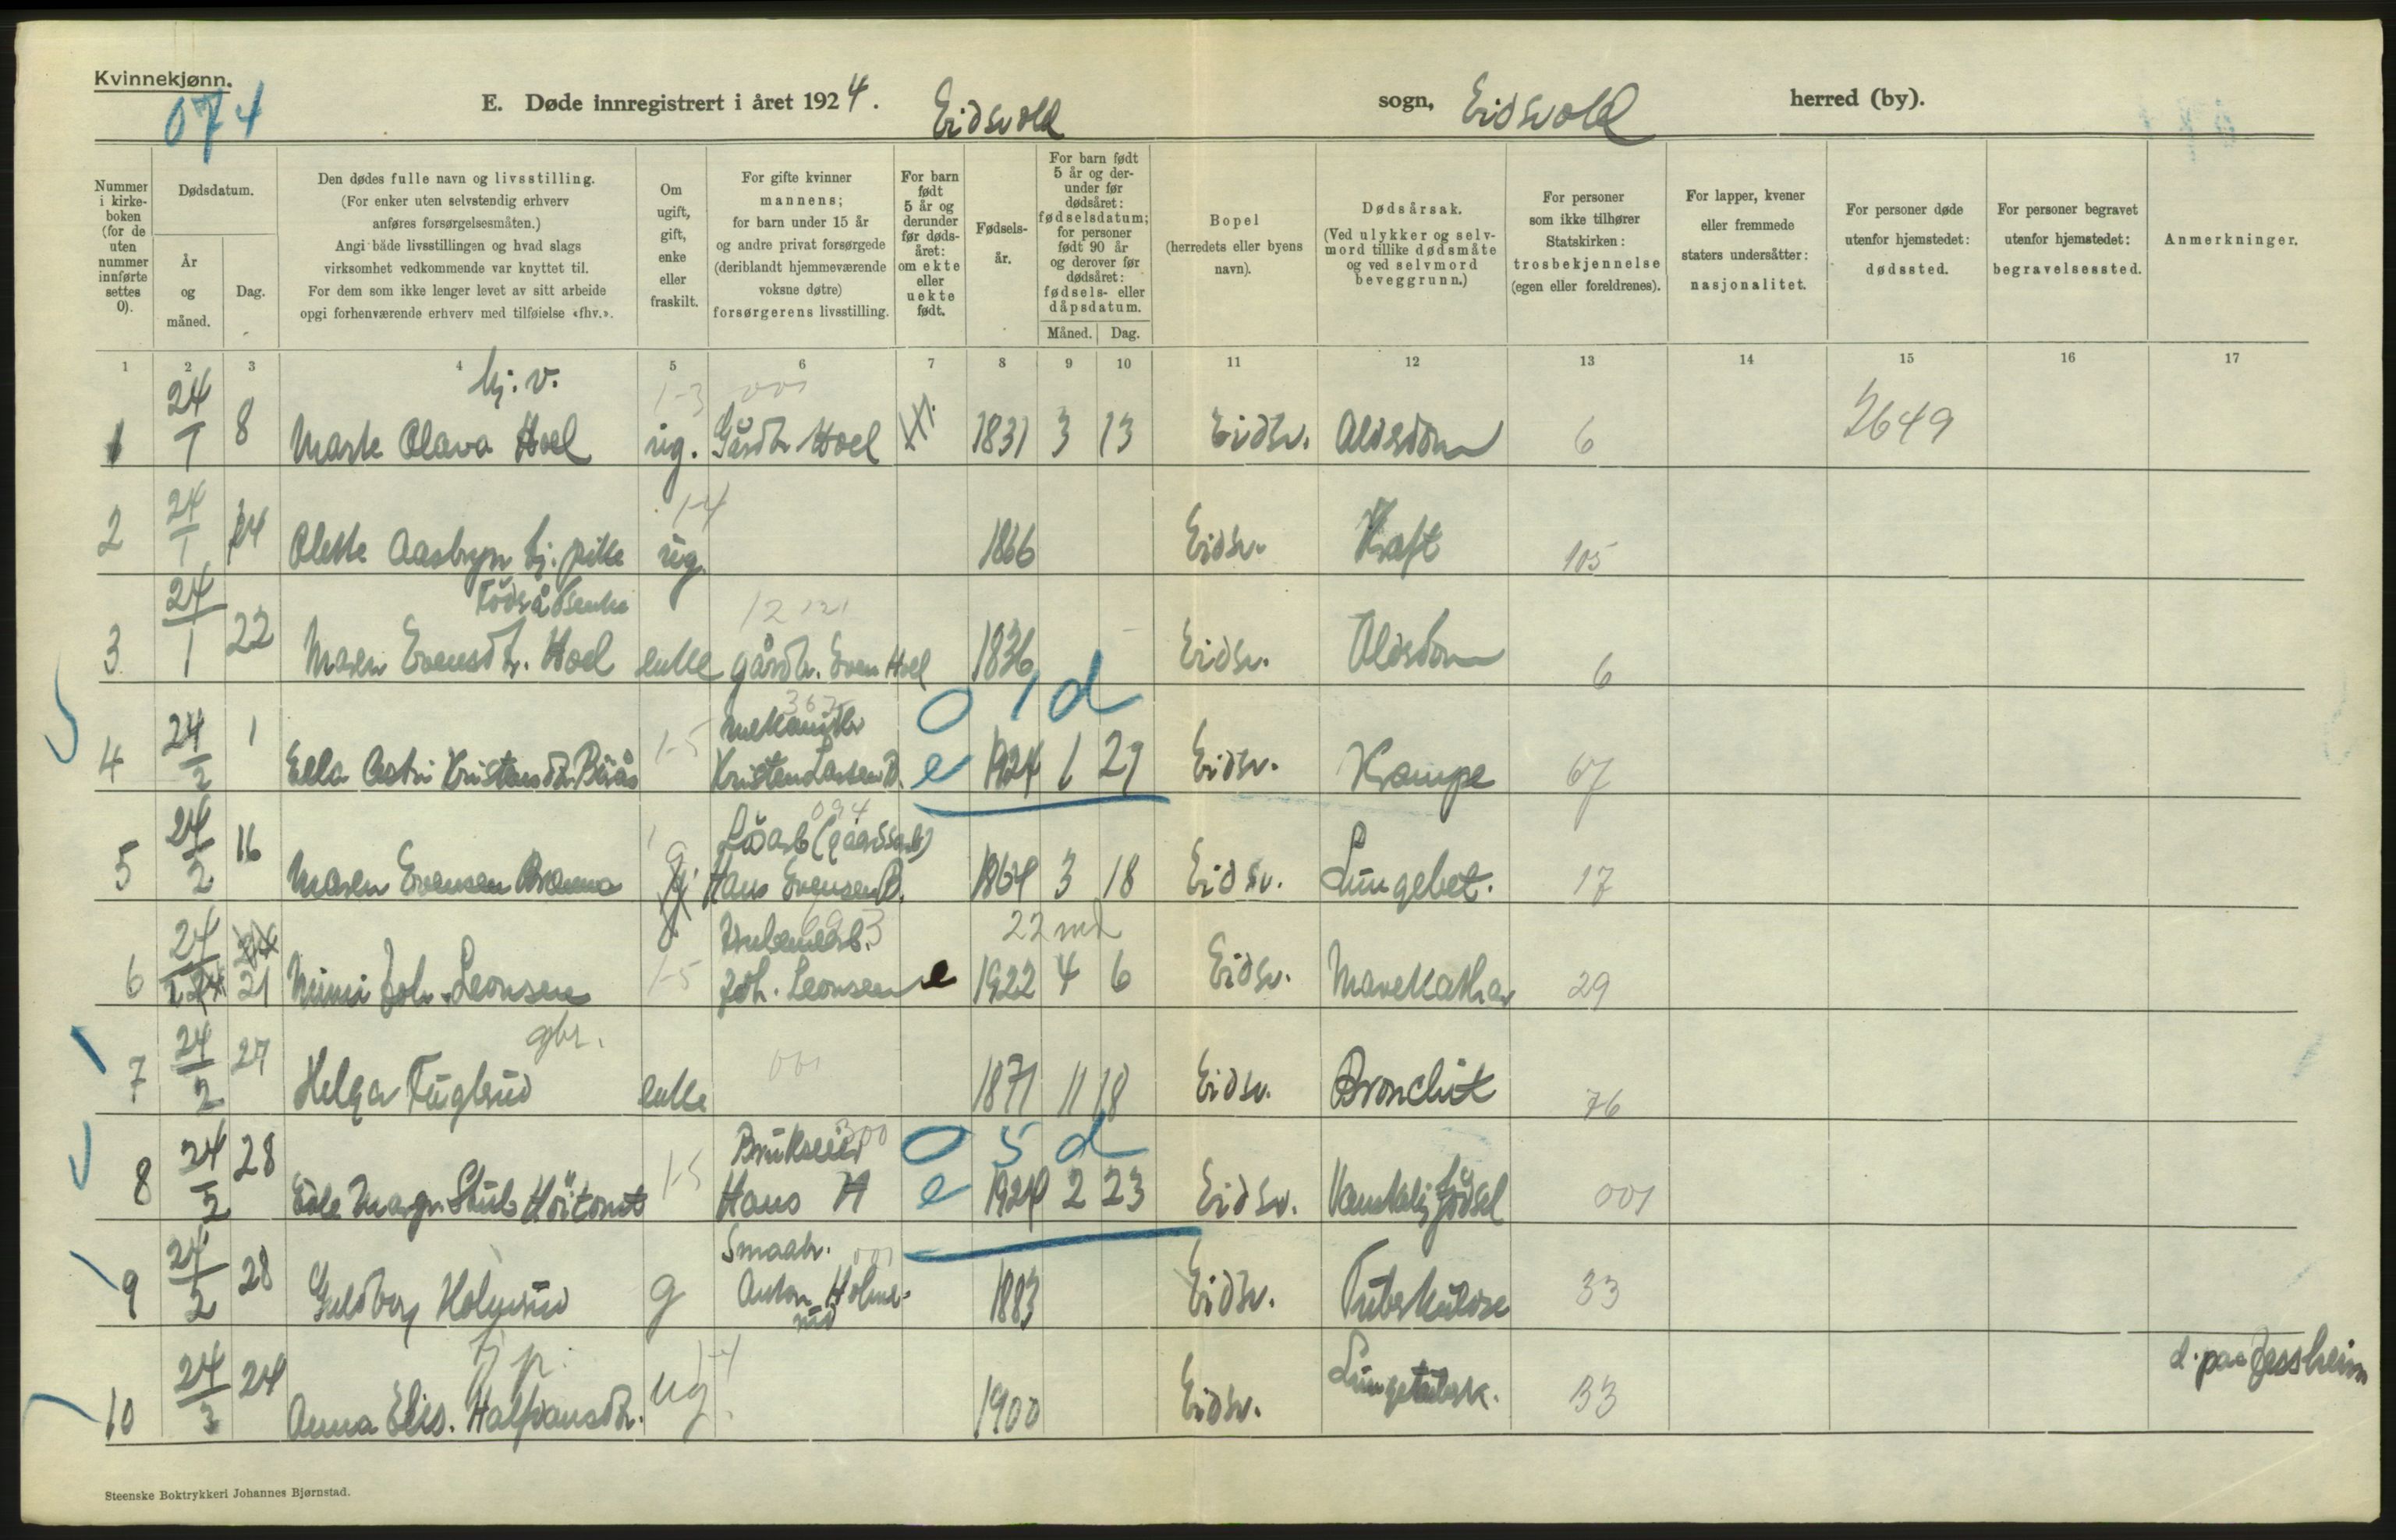 Kvinnekjønn.
074
E. Døde innregistrert i året 1924. Eidsvold sogn, Eidsvold herred (by).
Nummer i kirke-boken (for de uten nummer innførte settes 0).
Dødsdatum.
År og måned.
Dag.
Den dødes fulle navn og livsstilling.
(For enker uten selvstendig erhverv
anføres forsørgelsesmåten.)
Angi både livsstillingen og hvad slags
virksomhet vedkommende var knyttet til.
For dem som ikke lenger levet av sitt arbeide
opgi forhenværende erhverv med tilføielse «fhv.».
Om ugift, gift, enke eller fraskilt.
For gifte kvinner
mannens;
for barn under 15 år
og andre privat forsørgede
(deriblandt hjemmeværende
voksne døtre)
forsørgerens livsstilling.
For barn født 5 år og derunder før døds-året: om ekte eller uekte født.
Fødsels-år.
For barn født 5 år og der-under før dødsåret: fødselsdatum; for personer født 90 år og derover før dødsåret: fødsels- eller dåpsdatum.
Måned. Dag.
Bopel
(herredets eller byens
navn).
Dødsårsak.
(Ved ulykker og selv-
mord tillike dødsmåte
og ved selvmord
beveggrunn.)
For personer
som ikke tilhører
Statskirken:
trosbekjennelse
(egen eller foreldrenes).
For lapper, kvener
eller fremmede
staters undersåtter:
nasjonalitet.
For personer døde
utenfor hjemstedet:
dødssted.
For personer begravet
utenfor hjemstedet:
begravelsessted.
Anmerkninger.
1 2 3 4 5 6 7 8 9 10 11 12 13 14 15 16 17
hj. v. 1-3 001
1 24/1 8 Marte Olava Hoel ug. Gårdbr Hoel 1831 3 13 Eidsv. Aldersdom 6 2649
1-4
2 24/1 14 Olette Aasbryn tj. pike ug. 1866 Eidsv. Kræft 105
Föderådsenke 12 121
3 24/1 22 Maren Evensdtr. Hoel enke gårdbr. Even Hoel 1836 Eidsv. Aldersdom 6
0 1 d
4 24/2 1 Ella Astri Kristensdtr Bøås 1-5 Kristen Larsen B. e 1924 1 29 Eidsv. Krampe 67
094
Lösarb (gaardsarb)
5 24/2 16 Maren Evensen g Hans Evensen B. 1864 3 18 Eidsv. Lungebet. 17
22 md
6 24 21 Mimi Joh. Leonsen 1-5 Joh. Leonsen e 1922 4 6 Eidsv. Mavekathar 29
gbr. 001
7 24/2 27 Helga Fuglerud enke 1871 11 18 Eidsv. Bronchit 76
Brukseier 300 0 5 d
8 24/2 28 Edle Margr. Stub 1-5 Hans H e 1924 2 23 Eidsv. Vanskelig födsel 001
Smaabr. 001
9 24/2 28 Guldborg Holmrud g Anton Holmrud 1883 Eidsv. Tuberkulose 33
tj. p. 1-4
10 24/3 24 Anna Elis. Halfvansdtr. ug. 1900 Eidsv. Lungetuberk. 33 d. paa Jessheim
Steenske Boktrykkeri Johannes Bjørnstad.